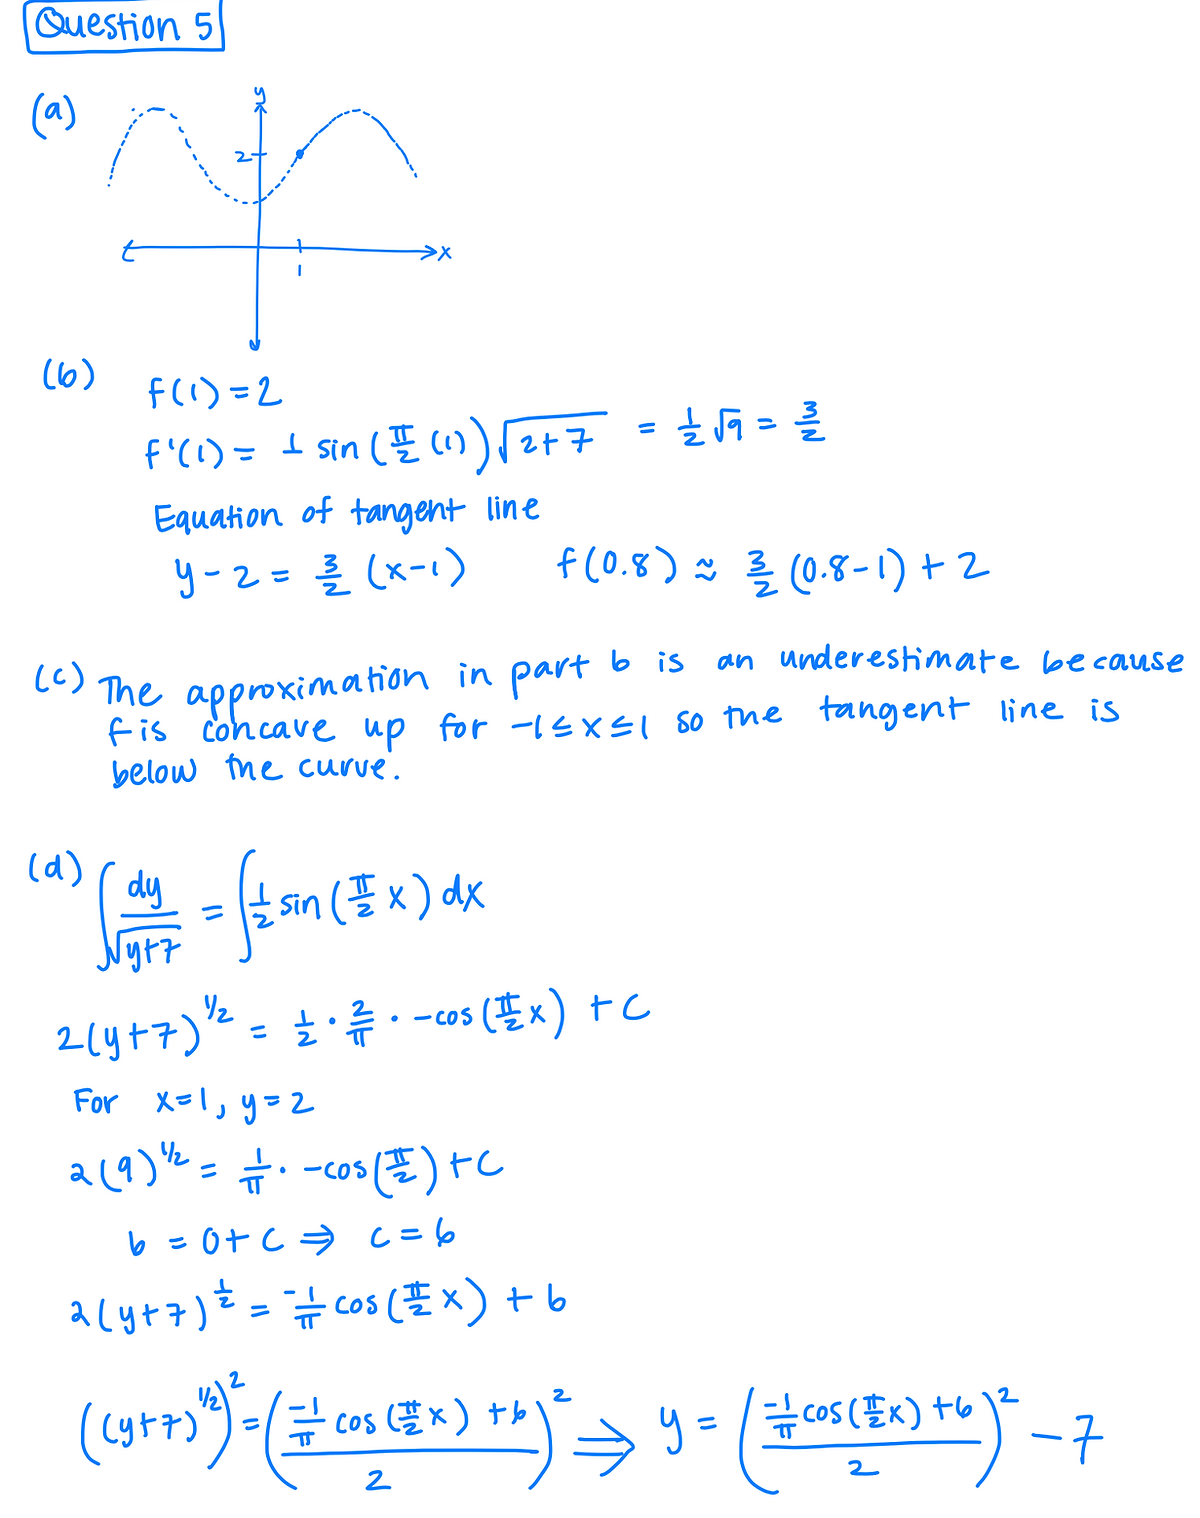 Question 5
(a)
y
2
x
1
(b)
f(1) = 2
f'(1) = 1 sin(π/2 (1))√(2+7) = 1/2 √9 = 3/2
Equation of tangent line
y - 2 = 3/2 (x-1) f(0.8) ≈ 3/2 (0.8-1) + 2
(c) The approximation in part b is an underestimate because
f is concave up for -1 ≤ x ≤ 1 so the tangent line is
below the curve.
(d) ∫ dy/√(y+7) = ∫ 1/2 sin(π/2 x) dx
2(y+7)^1/2 = 1/2 · 2/π · -cos(π/2 x) + C
For x=1, y=2
2(9)^1/2 = 1/π · -cos(π/2) + C
6 = 0 + C ⇒ C = 6
2(y+7)^1/2 = -1/π cos(π/2 x) + 6
((y+7)^1/2)^2 = ((-1/π cos(π/2 x) + 6)/2)^2 ⇒ y = ((-1/π cos(π/2 x) + 6)/2)^2 - 7